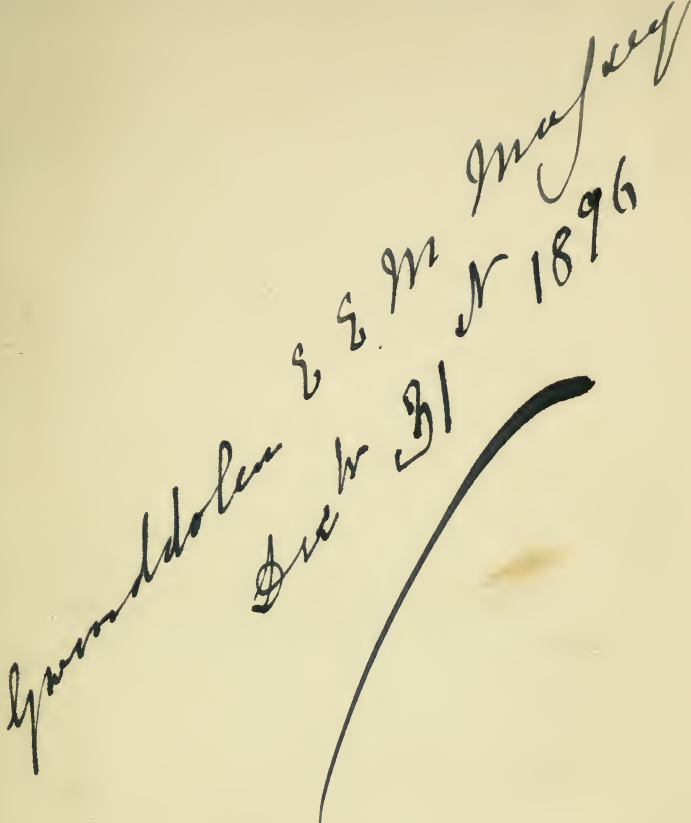 Gwenddolen E E. M Massey
Decr 31 st 1896